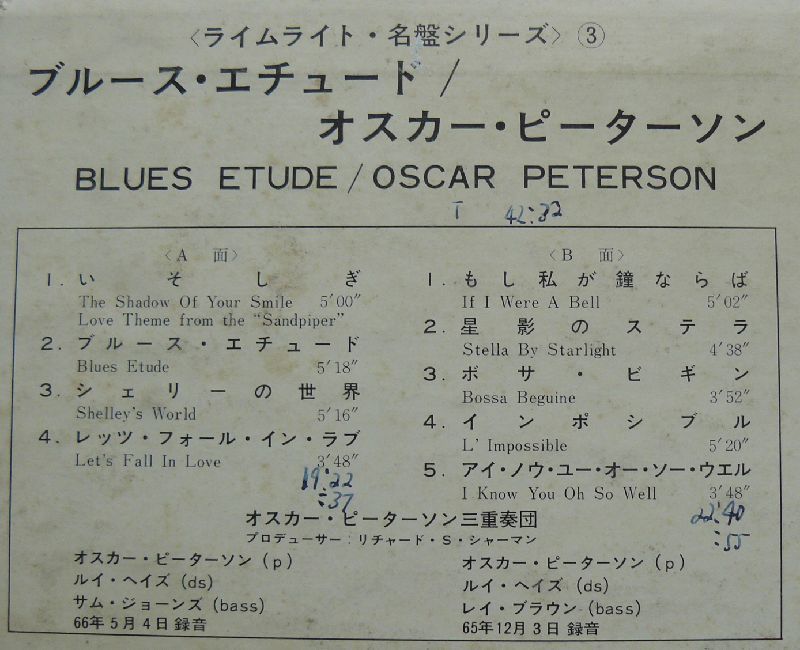 〈ライムライト・名盤シリーズ〉③
ブルース・エチュード/
オスカー・ピーターソン
BLUES ETUDE/OSCAR PETERSON
T 42:32
〈A 面〉
1. いそしぎ
The Shadow Of Your Smile 5′00″
Love Theme from the “Sandpiper”
2. ブルース・エチュード
Blues Etude 5′18″
3. シェリーの世界
Shelley's World 5′16″
4. レッツ・フォール・イン・ラブ
Let's Fall In Love 3′48″
19:22
:37
〈B 面〉
1. もし私が鐘ならば
If I Were A Bell 5′02″
2. 星影のステラ
Stella By Starlight 4′38″
3. ボサ・ビギン
Bossa Beguine 3′52″
4. インポシブル
L' Impossible 5′20″
5. アイ・ノウ・ユー・オー・ソー・ウエル
I Know You Oh So Well 3′48″
22:40
:55
オスカー・ピーターソン三重奏団
プロデューサー：リチャード・S・シャーマン
オスカー・ピーターソン(p)
ルイ・ヘイズ(ds)
サム・ジョーンズ(bass)
66年5月4日録音
オスカー・ピーターソン(p)
ルイ・ヘイズ(ds)
レイ・ブラウン(bass)
65年12月3日録音